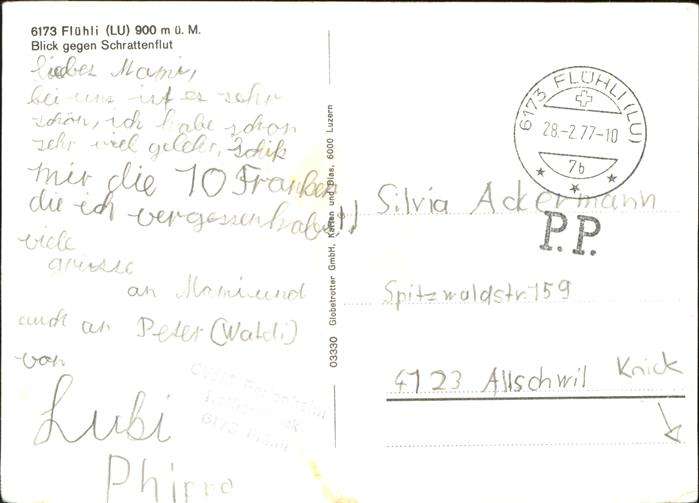 6173 Flühli (LU) 900 m ü. M.
Blick gegen Schrattenflut
lieber Mami,
bei uns ist es sehr
schön, ich habe schon
sehr viel gelder, schik
mir die 10 Franken
die ich vergessen habe!!
viele
grusse
an Mami und
auch an Peter (Waldi)
von
Lubi
Phirro
03330 Globetrotter GmbH, Karten und Dias, 6000 Luzern
6173 FLÜHLI (LU)
28.-2.77-10
7b
P.P.
Silvia Ackermann
Spitzwaldstr. 159
4123 Allschwil
Knick
6173 Flühli